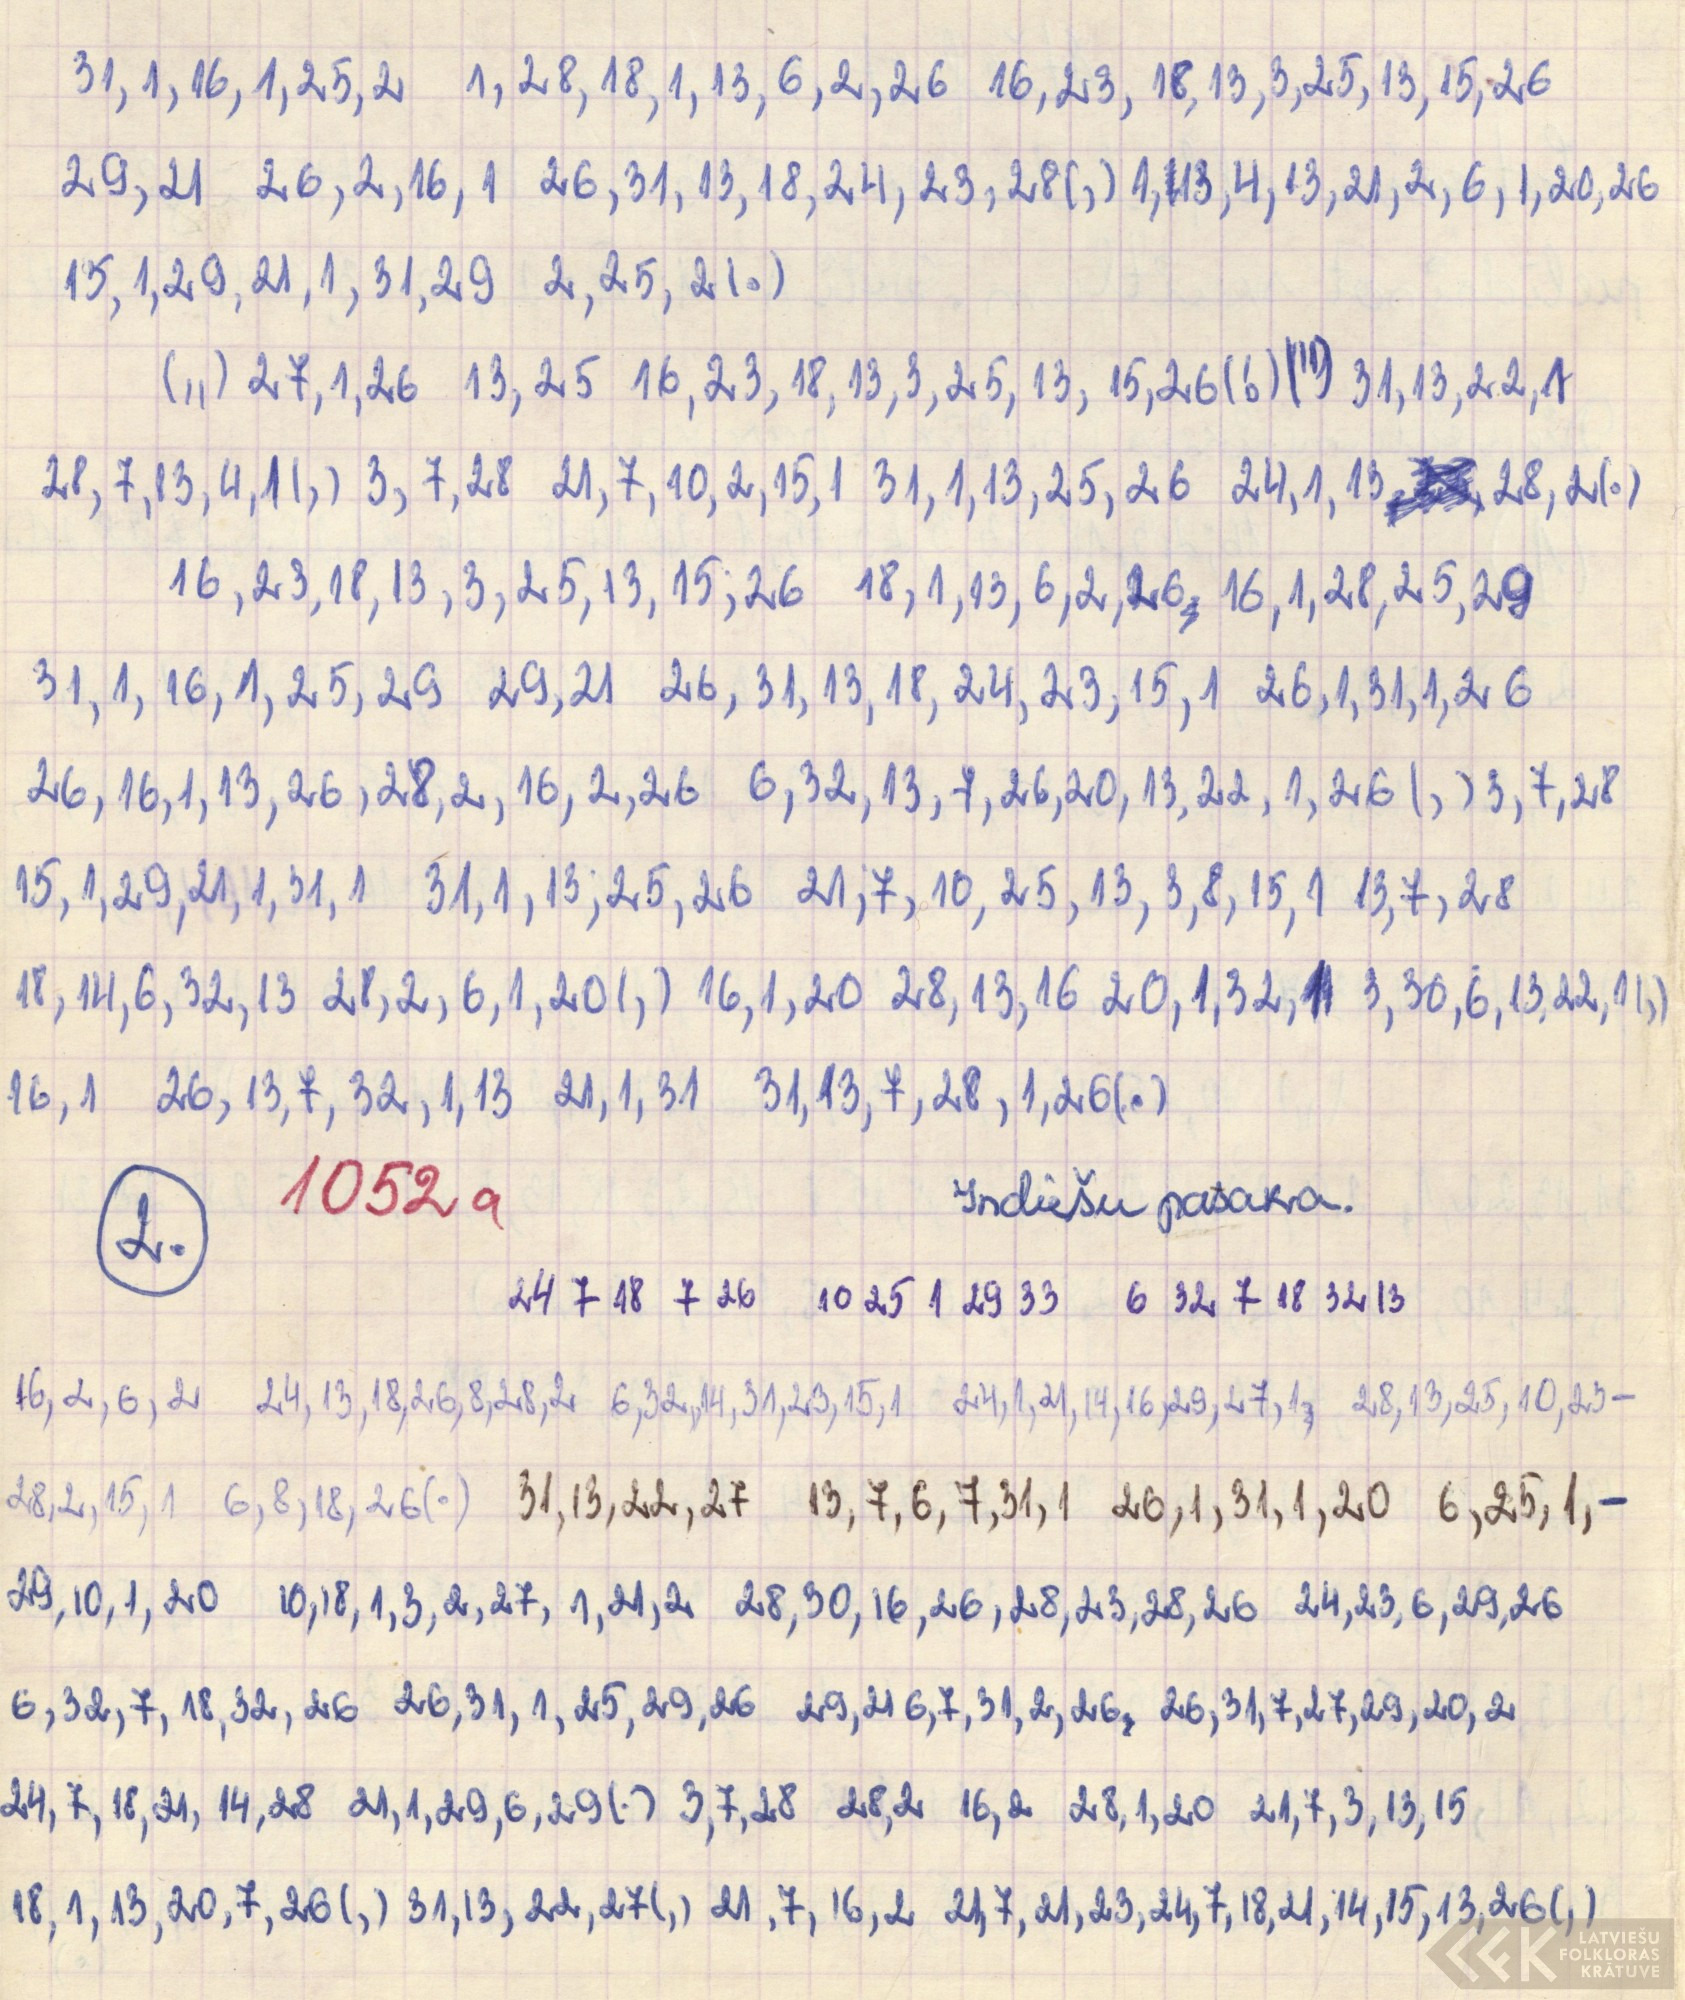 31, 1, 16, 1, 25, 2 1, 28, 18, 1, 13, 6, 2, 26 16, 23, 18, 13, 3, 25, 13, 15, 26
29, 21 26, 2, 16, 1 26, 31, 13, 18, 24, 23, 28(,) 1, 13, 4, 13, 21, 2, 6, 1, 20, 26
15, 1, 29, 21, 1, 31, 29 2, 25, 2(.)
(„) 27, 1, 26 13, 25 16, 23, 18, 13, 3, 25, 13, 15, 26(6)(") 31, 13, 22, 1
28, 7, 13, 4, 1(,) 3, 7, 28 21, 7, 10, 2, 15, 1 31, 1, 13, 25, 26 24, 1, 13, 28, 2(.)
16, 23, 18, 13, 3, 25, 13, 15, 26 18, 1, 13, 6, 2, 26, 16, 1, 28, 25, 29
31, 1, 16, 1, 25, 29 29, 21 26, 31, 13, 18, 24, 23, 15, 1 26, 1, 31, 1, 26
26, 16, 1, 13, 26, 28, 2, 16, 2, 26 6, 32, 13, 7, 26, 20, 13, 22, 1, 26(,) 3, 7, 28
15, 1, 29, 21, 1, 31, 1 31, 1, 13, 25, 26 21, 7, 10, 25, 13, 3, 8, 15, 1 13, 7, 28
18, 14, 6, 32, 13 28, 2, 6, 1, 20(,) 16, 1, 20 28, 13, 16 20, 1, 32, 1 3, 30, 6, 13, 22, 1(,)
16, 1 26, 13, 7, 32, 1, 13 21, 1, 31 31, 13, 7, 28, 1, 26(.)
2. 1052a Indiešu pasaka.
24 7 18 7 26 10 25 1 29 33 6 32 7 18 32 13
16, 2, 6, 2 24, 13, 18, 26, 8, 28, 2 6, 32, 14, 31, 23, 15, 1 24, 1, 21, 14, 16, 29, 27, 1, 28, 13, 25, 10, 23-
28, 2, 15, 1 6, 8, 18, 26(.) 31, 13, 22, 27 13, 7, 6, 7, 31, 1 26, 1, 31, 1, 20 6, 25, 1, -
29, 10, 1, 20 10, 18, 1, 3, 2, 27, 1, 21, 2 28, 30, 16, 26, 28, 23, 28, 26 24, 23, 6, 29, 26
6, 32, 7, 18, 32, 26 26, 31, 1, 25, 29, 26 29, 21 6, 7, 31, 2, 26, 26, 31, 7, 27, 29, 20, 2
24, 7, 18, 21, 14, 28 21, 1, 29, 6, 29(.) 3, 7, 28 28, 2 16, 2 28, 1, 20 21, 7, 3, 13, 15
18, 1, 13, 20, 7, 26(,) 31, 13, 22, 27(,) 21, 7, 16, 2 21, 7, 21, 23, 24, 7, 18, 21, 14, 15, 13, 26(,)
LATVIEŠU
FOLKLORAS
KRĀTUVE